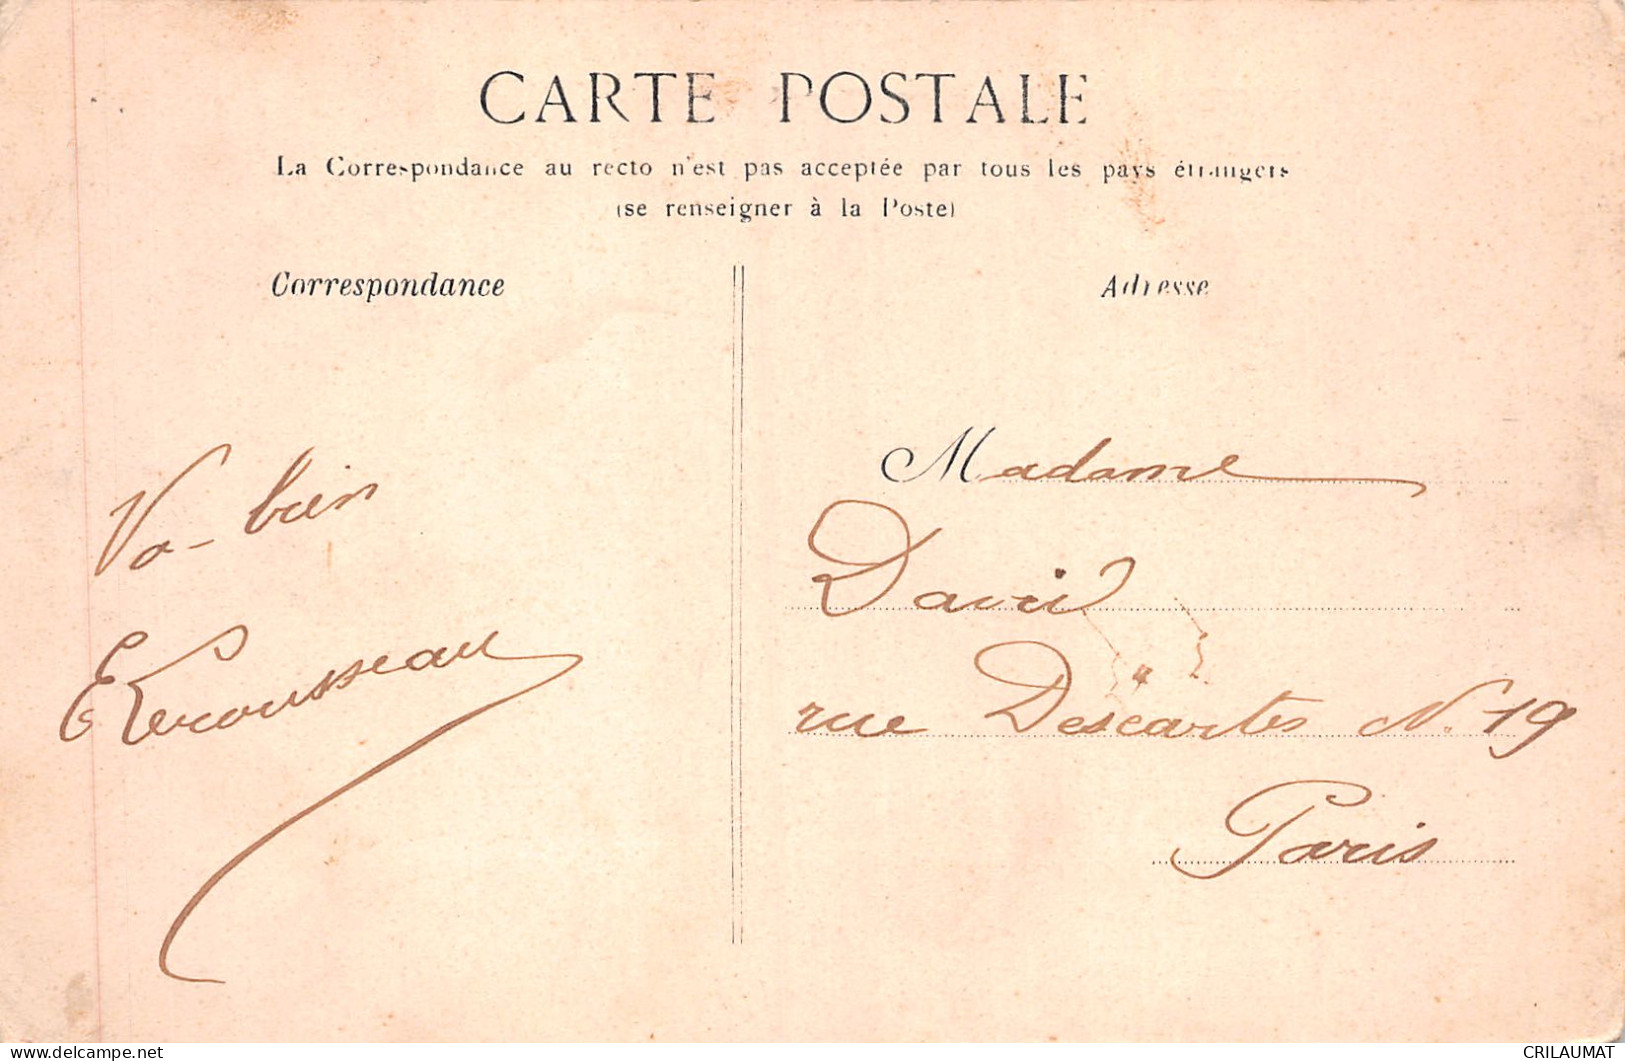 CARTE POSTALE
La Correspondance au recto n'est pas acceptée par tous les pays étrangers
(se renseigner à la Poste)
Correspondance
Adresse
Va-bien
Madame
David
rue Descartes N. 19
Paris
CRILAUMAT